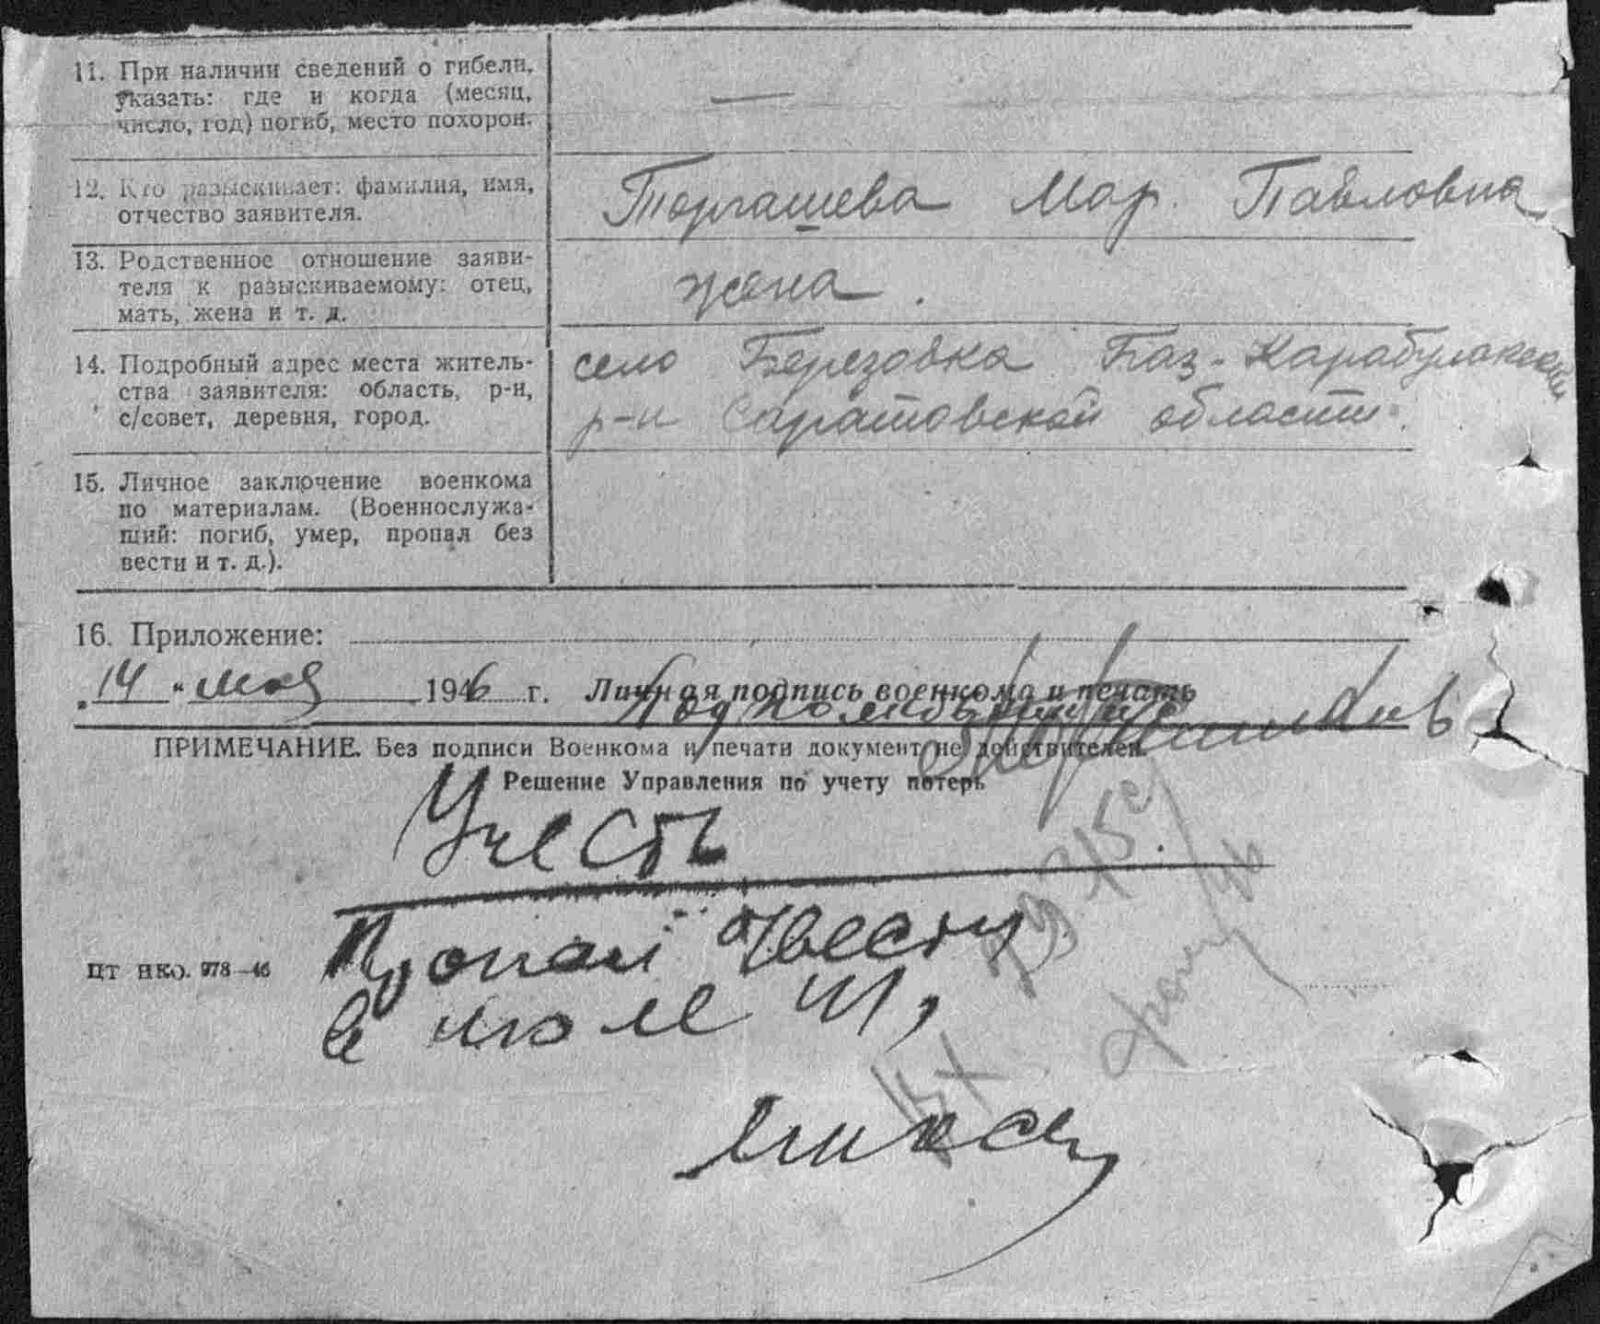 11. При наличии сведений о гибели,
указать: где и когда (месяц,
число, год) погиб, место похорон.
—
12. Кто разыскивает: фамилия, имя,
отчество заявителя.
Торгашева Мар. Павловна
13. Родственное отношение заяви-
теля к разыскиваемому: отец,
мать, жена и т. д.
жена.
14. Подробный адрес места житель-
ства заявителя: область, р-н,
с/совет, деревня, город.
село Березовка Баз-Карабулакский
р-н Саратовской области.
15. Личное заключение военкома
по материалам. (Военнослужа-
щий: погиб, умер, пропал без
вести и т. д.).
16. Приложение:
"14" мая 1946 г. Личная подпись военкома и печать
Подполковник
ПРИМЕЧАНИЕ. Без подписи Военкома и печати документ не действителен.
Решение Управления по учету потерь
Учесть
Пропал б/вести
в июле 41,
ЦТ НКО. 978—46